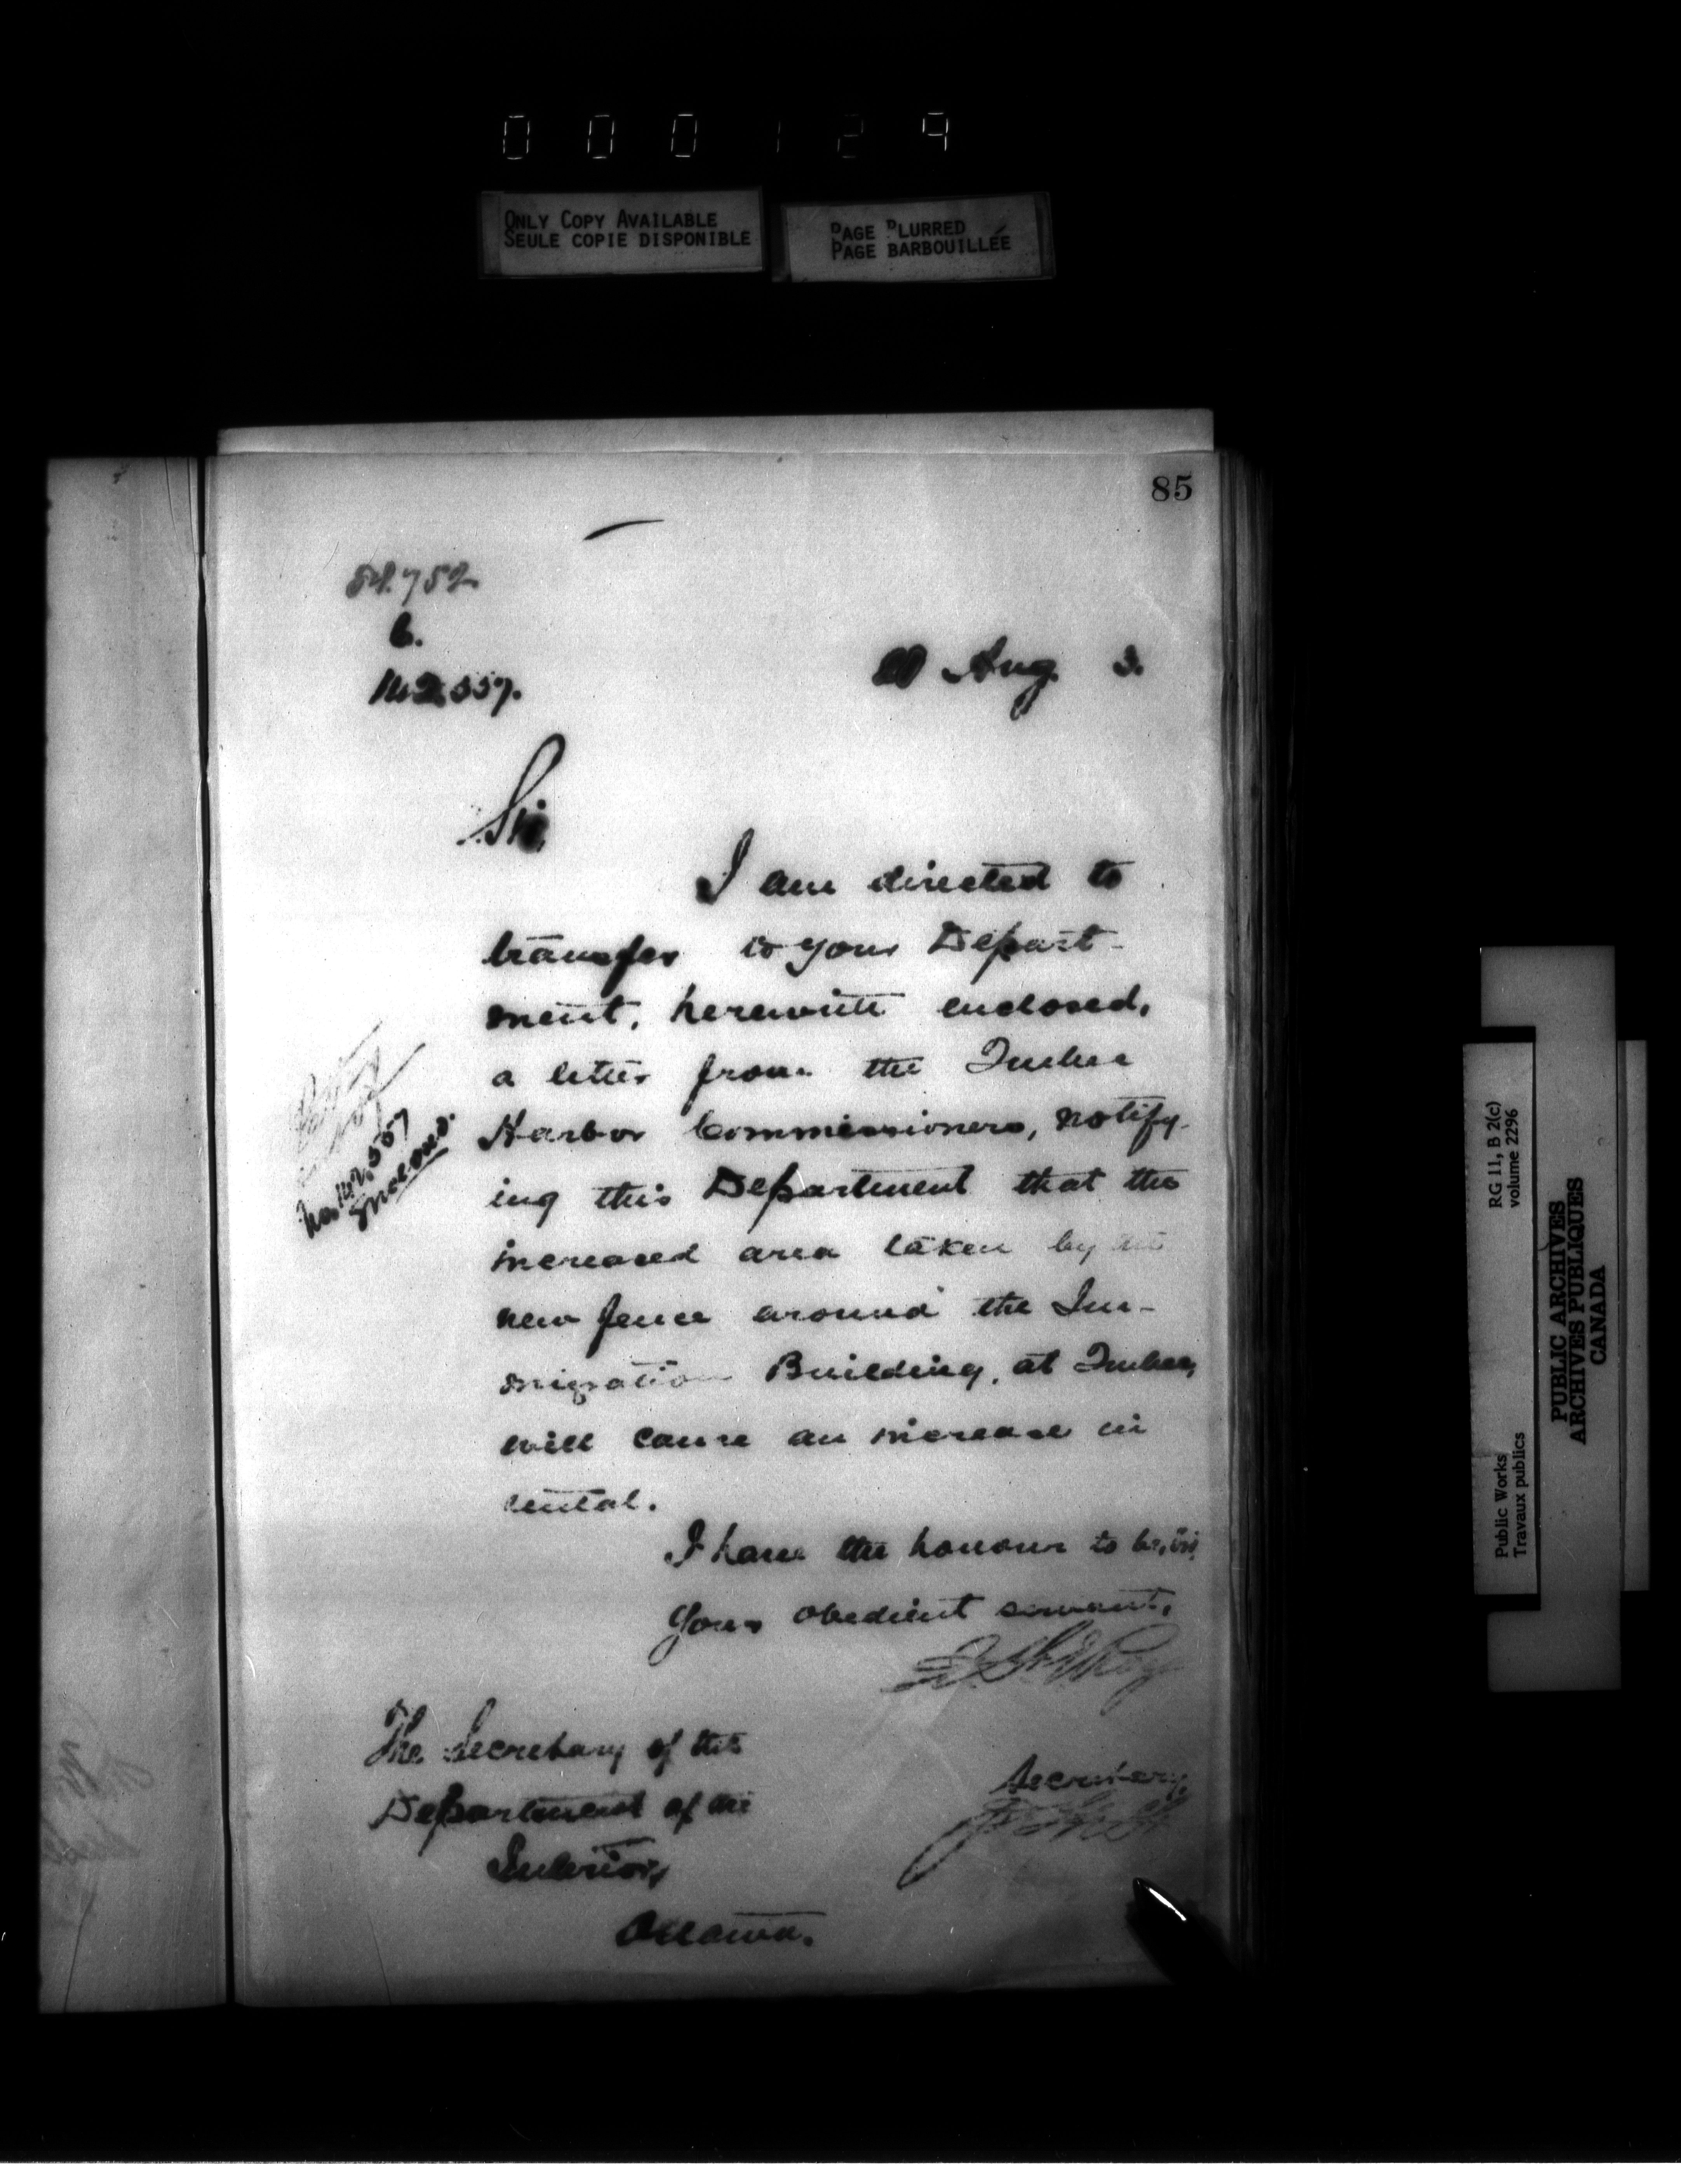 000129
ONLY COPY AVAILABLE
SEULE COPIE DISPONIBLE
PAGE BLURRED
PAGE BARBOUILLÉE
85
54.752
C.
142.557.
20 Aug. 3.
Sir,
I am directed to
transfer to your Depart-
ment, herewith enclosed,
a letter from the Quebec
Harbor Commissioners, notify-
ing this Department that the
increased area taken by the
new fence around the Im-
migration Building, at Quebec,
will cause an increase in
rental.
I have the honour to be, Sir,
Your obedient servant,
No. 142.557
Enclosed.
Secretary.
The Secretary of the
Department of the
Interior,
Ottawa.
RG 11, B 2(c)
volume 2296
Public Works
Travaux publics
PUBLIC ARCHIVES
ARCHIVES PUBLIQUES
CANADA